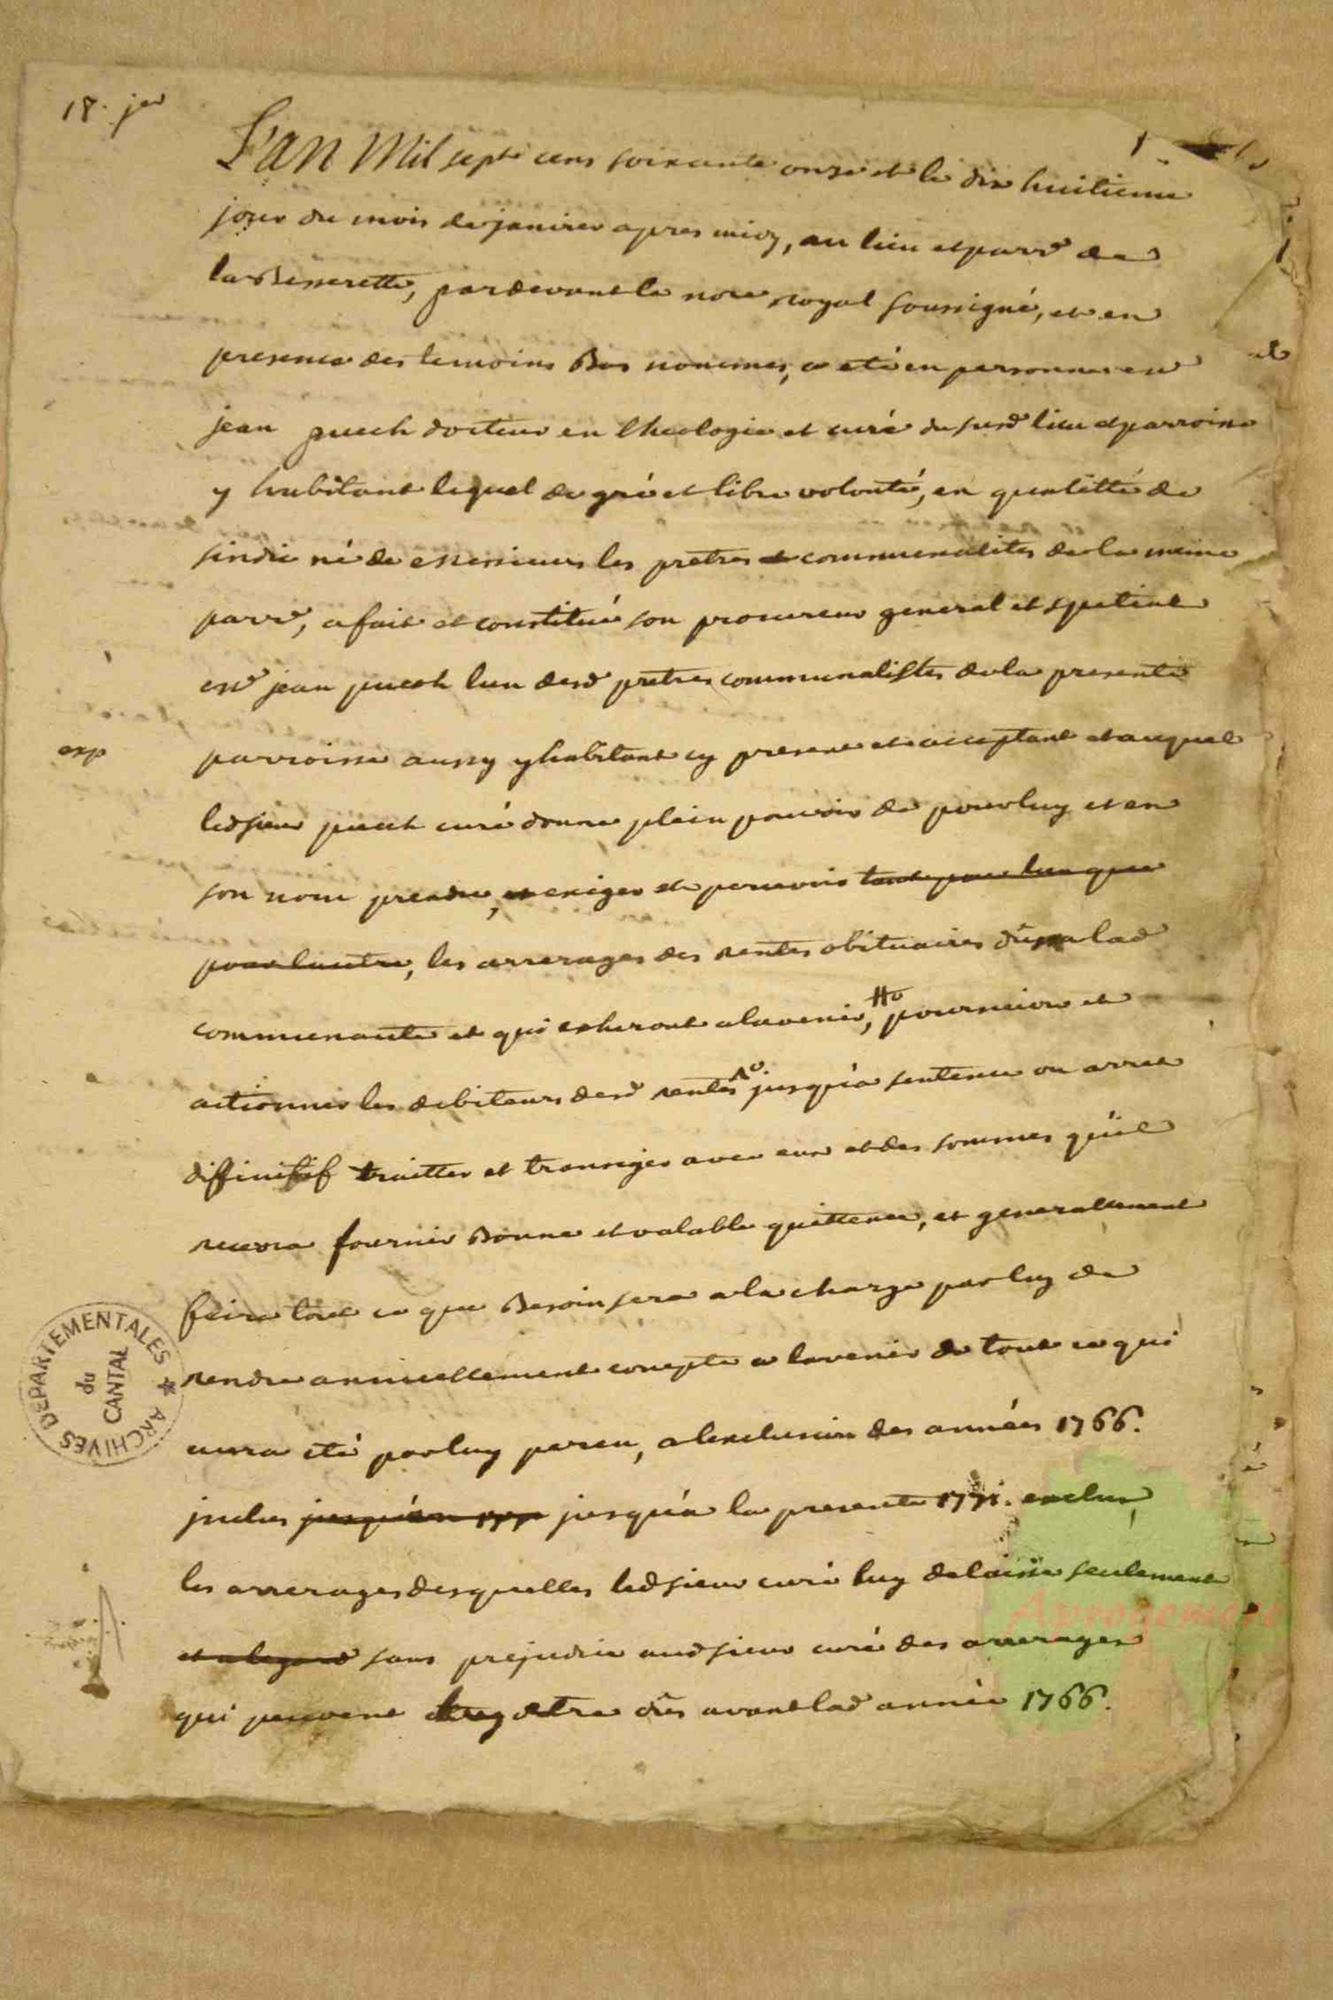 18. jer
1.
L'an Mil sept cens soixante onze et le dix huitieme
jour du mois de janvier apres midy, au lieu et parr^e de
la Besserette, pardevant le no^re royal soussigné, et en
presence des temoins Bas nommes, a eté en personne m^e
jean puech docteur en theologie et curé du susd lieu et parroisse
y habitant lequel de gré et libre volonté, en qualitté de
sindic né de messieurs les pretres communalites de la meme
parr^e, a fait et constitué son procureur general et spetial
m^e jean puech l'un desd pretres communalistes de la presente
exp
parroisse aussy y habitant cy present et acceptant et auquel
led sieur puech curé donne plein pouvoir de pour luy et en
son nom prendre, exiger et percevoir tant pour l'un que
pour lautre, les arrerages des rentes obituaires dûs a lad
communauté et qui echeront a lavenir, poursuivre et
actionner les debiteurs desd rentes jusqu'a sentence ou arret
diffinitif traitter et transiger avec eux et des sommes qu'il
recevra fournir Bonne et valable quittence, et generallement
faire tout ce que Besoin sera a la charge par luy de
rendre annuellement compte a lavenir de tout ce qui
aura eté par luy perçu, a lexclusion des années 1766.
inclus jusqu'en jusqu'a la presente 1771. exclus,
les arrerages desquelles led sieur curé luy delaisse seulement
et alegard sans prejudice aud sieur curé des arrerages
qui peuvent luy etre dûs avant lad année 1766.
ARCHIVES DEPARTEMENTALES
du
CANTAL